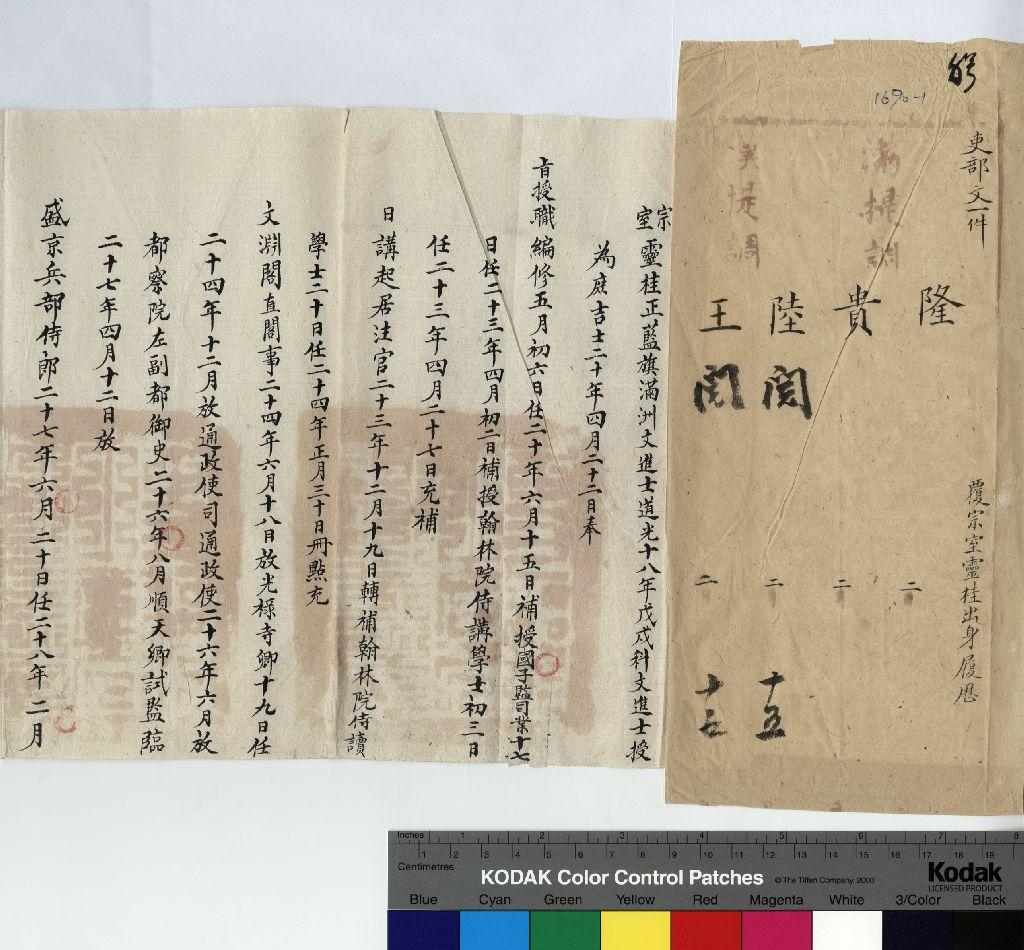 1690-1
吏部文一件
覆宗室靈桂出身履歷
滿提調
漢提調
隆 二
貴 二
陸 閱 二 十五
王 閱 二 十七
宗室靈桂正藍旗滿洲文進士道光十八年戊戌科文進士授
為庶吉士二十年四月二十二日奉
旨授職編修五月初六日任二十年六月十五日補授國子監司業十七
日任二十三年四月初二日補授翰林院侍講學士初三日
任二十三年四月二十七日充補
日講起居注官二十三年十二月十九日轉補翰林院侍讀
學士二十日任二十四年正月三十日冊點充
文淵閣直閣事二十四年六月十八日放光祿寺卿十九日任
二十四年十二月放通政使司通政使二十六年六月放
都察院左副都御史二十六年八月順天鄉試監臨
二十七年四月十二日放
盛京兵部侍郎二十七年六月二十日任二十八年二月
Inches 1 2 3 4 5 6 7 8
Centimetres 1 2 3 4 5 6 7 8 9 10 11 12 13 14 15 16 17 18 19
KODAK Color Control Patches © The Tiffen Company, 2000 Kodak
LICENSED PRODUCT
Blue Cyan Green Yellow Red Magenta White 3/Color Black